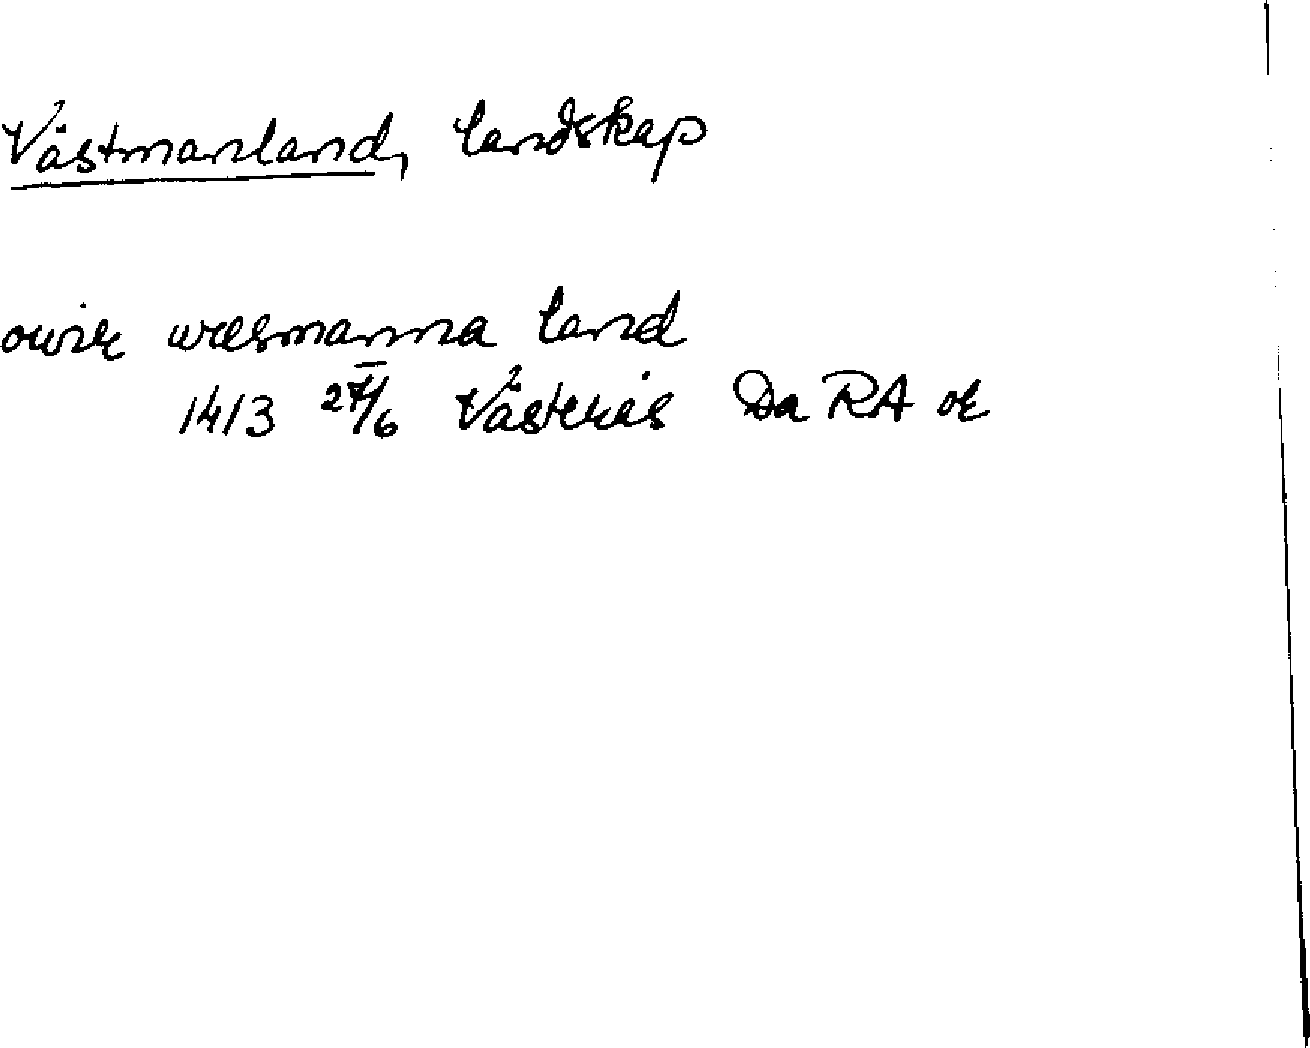 Västmanland, landskap
owir wæsmanna land
1413 27/6 Västerås Da RA or